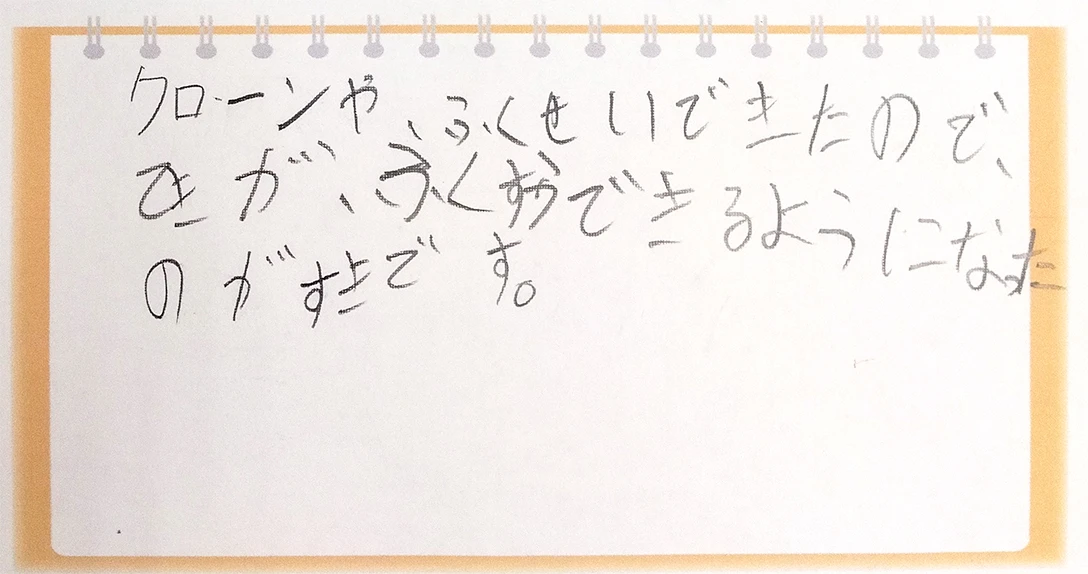 クローンや、ふくせいできたので、
きが、ふくずうできるようになった
のがすきです。